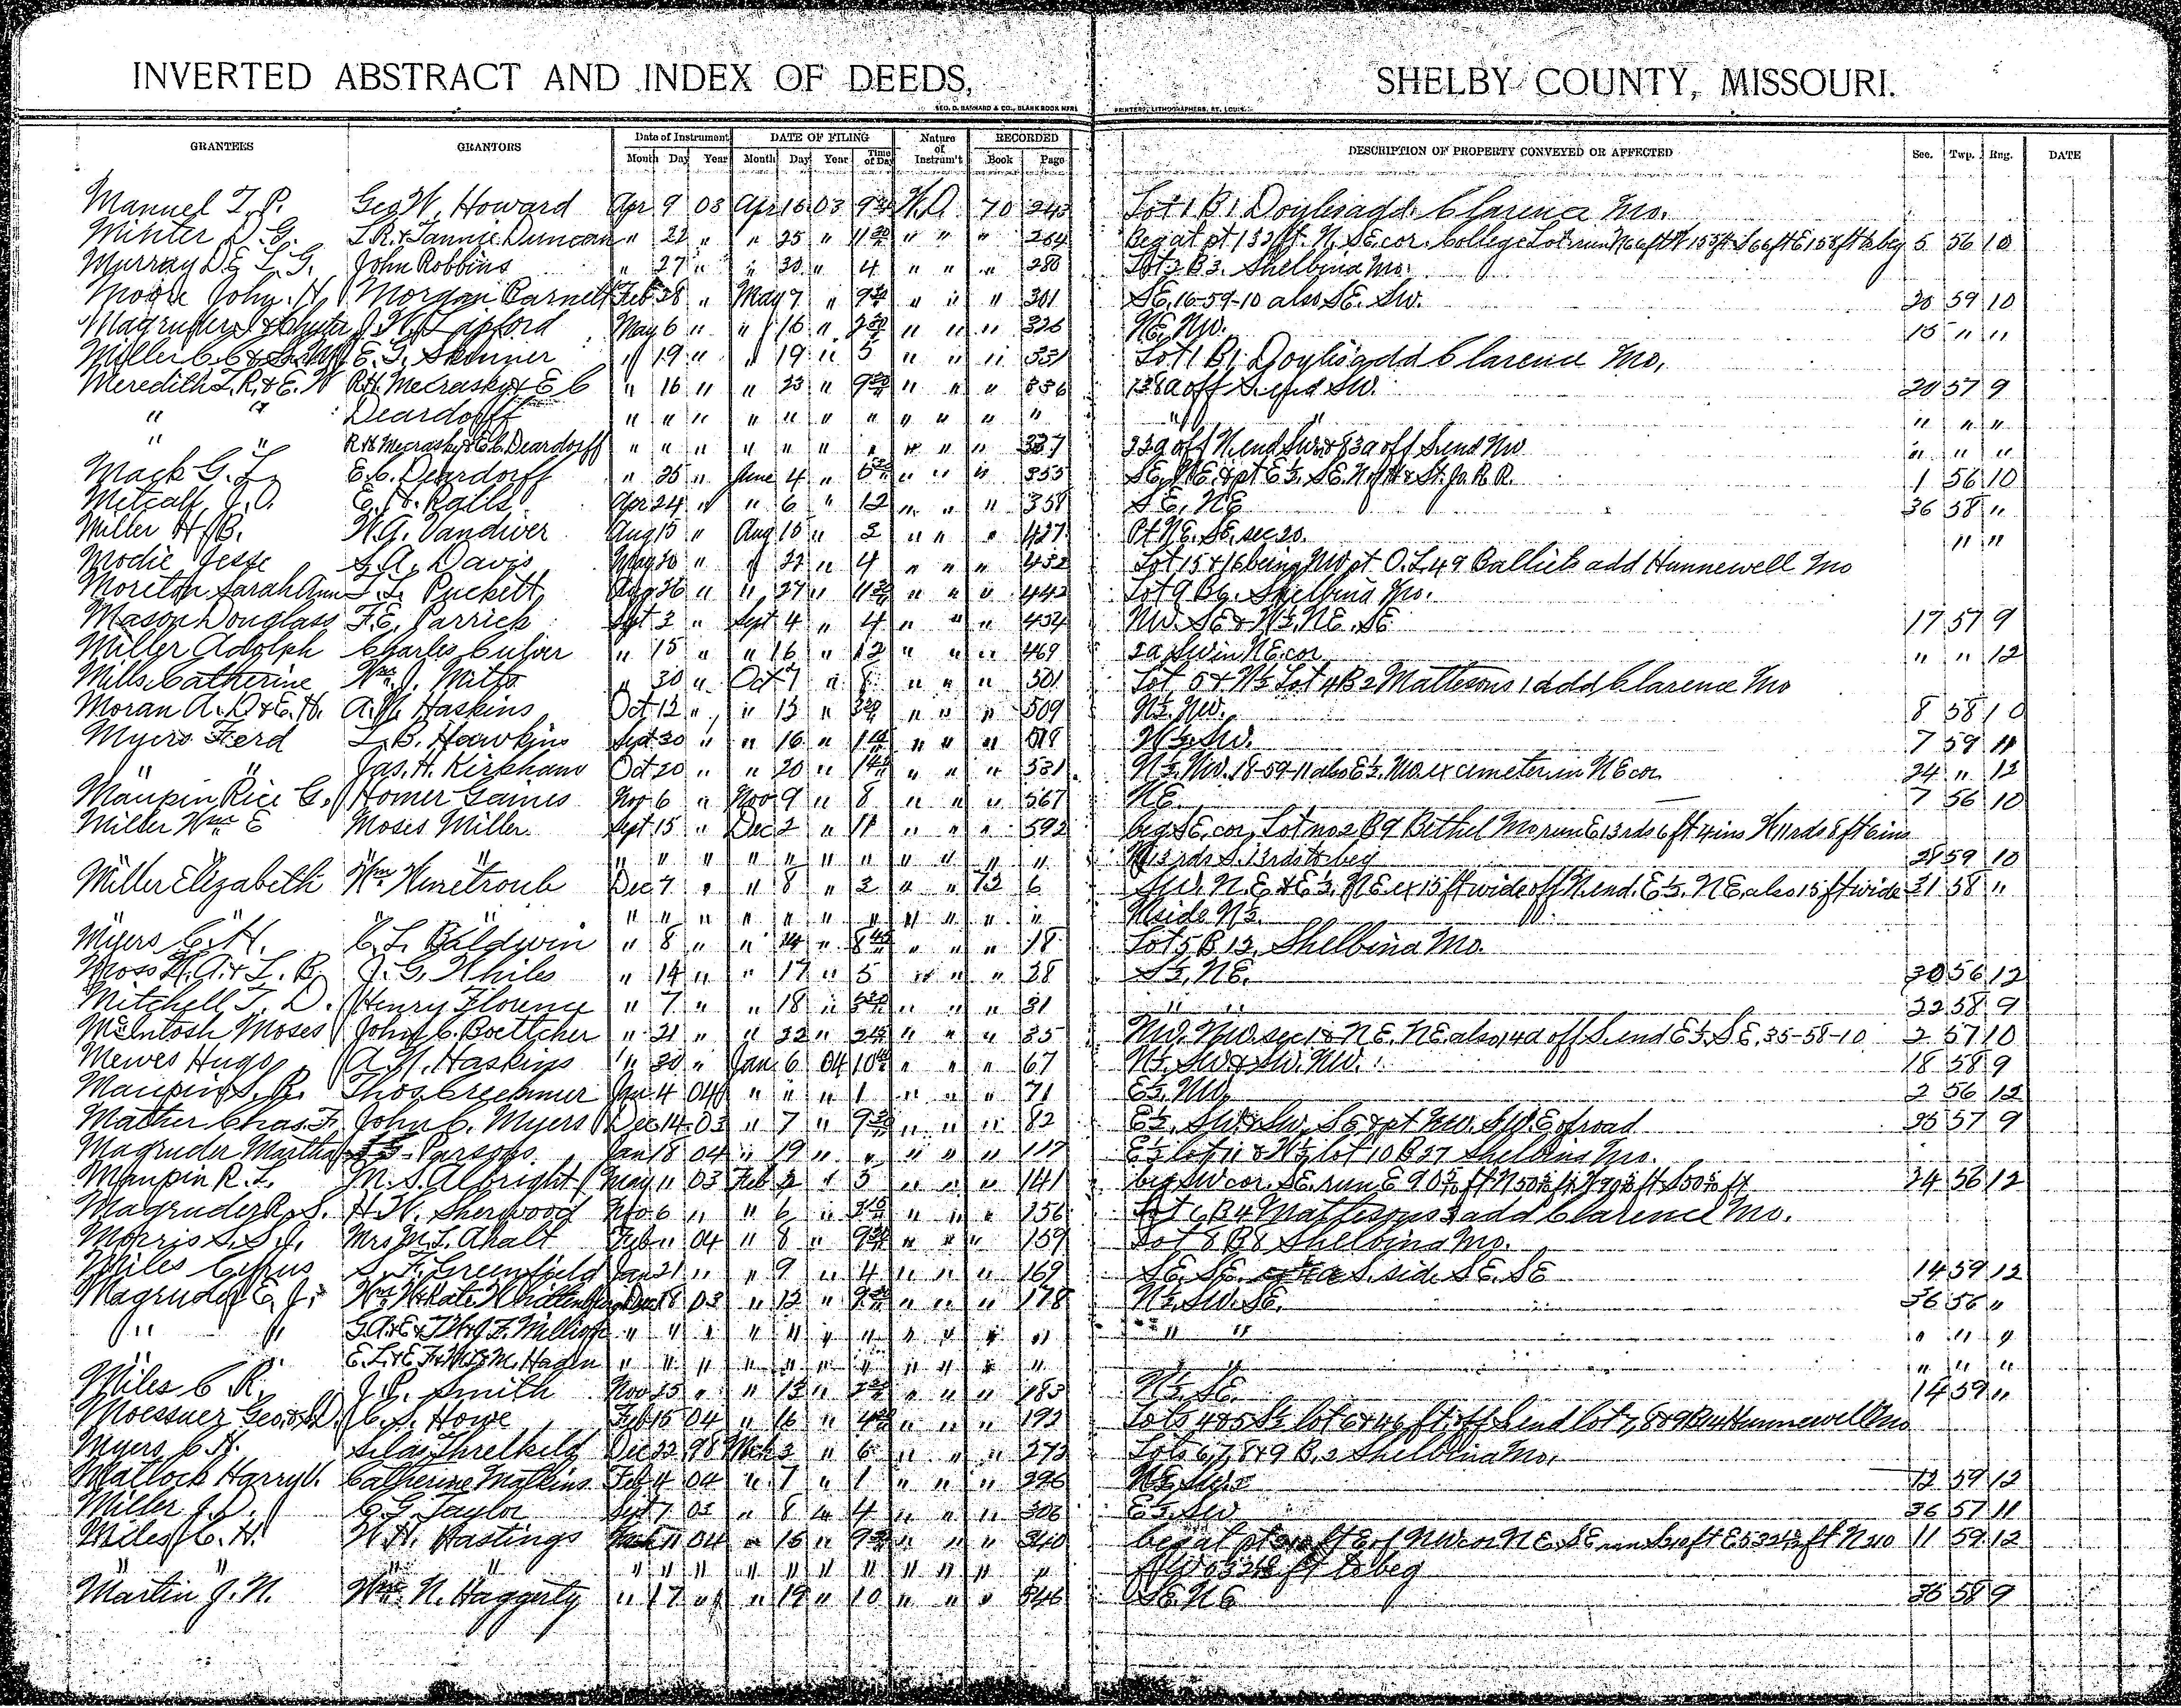 INVERTED ABSTRACT AND INDEX OF DEEDS, SHELBY COUNTY, MISSOURI.
GEO. D. BARNARD & CO., BLANK BOOK MFRS PRINTERS, LITHOGRAPHERS, ST. LOUIS.
GRANTEES GRANTORS Date of Instrument DATE OF FILING Nature of Instrum't RECORDED DESCRIPTION OF PROPERTY CONVEYED OR AFFECTED Sec. Twp. Rng. DATE
Month Day Year Month Day Year Time of Day Book Page
Manuel T. P. Geo W. Howard Apr 9 03 Apr 16 03 9 W.D. 70 243 Lot 1 B 1 Doyles add. Clarence Mo.
Minter D. G. L.R. & Fannie Duncan " 22 " " 25 " 11 " " " 264 Beg at pt 132 ft. N. SE cor. College Lot run N 66 ft W 155 ft S 66 ft E 158 ft to beg 5 56 10
Murray D E L. G. John Robbins " 27 " " 30 " 4 " " " 280 Lot 3 B 3. Shelbina Mo.
Moore John. H. Morgan Barnett Feb 28 " May 7 " 9 " " " 301 SE, 16-59-10 also SE. SW. 20 59 10
Magruder & Chester J. W. Lipford May 6 " " 16 " 2 " " " 326 NE, NW. 15 " "
Miller C C & E. G. Skinner " 19 " " 19 " 5 " " " 331 Lot 1 B 1 Doyles add Clarence Mo,
Meredith L.R. & E. W R.H. Mecrasky & E C " 16 " " 23 " 9 " " " 336 138a off S. end SW. 20 57 9
" " Deardorff " " " " " " " " " " " " " " "
" " R H Mecrasky & E.C. Deardorff " " " " " " " " " " 337 22a off N. end SW. & 83a off S end NW " " "
Mack G. L. E. C. Deardorff " 25 " June 4 " 5 " " " 355 SE, NE. & pt E½ SE. N of H & St. Jo. R R. 1 56 10
Metcalf J. O. E. H. Ralls Apr 24 " " 6 " 12 " " " 358 SE, NE 36 58 "
Miller H. B. W. G. Vandiver Aug 15 " Aug 15 " 3 " " " 427 Pt NE. SE, sec 20. " "
Modie Jesse S. A. Davis May 20 " " 22 " 4 " " " 432 Lot 15 & 16 being NW pt O.L. 49 add Hunnewell Mo
Moreton Sarah Ann L. L. Puckett Aug 26 " " 27 " 11 " " " 442 Lot 9 B 9. Shelbina Mo.
Mason Douglass F. E. Parrick Sept 3 " Sept 4 " 4 " " " 454 NW. SE & W½, NE. SE 17 57 9
Miller Adolph Charles Culver " 15 " " 16 " 12 " " " 469 2a, SW in NE cor. " " 12
Mills Catherine Wm. J. Mills " 30 " Oct 7 " 8 " " " 501 Lot 5 & N½ Lot 4 B 2 Mattesons 1 add Clarence Mo
Moran A. D & E. H. A. W. Haskins Oct 12 " " 13 " 3 " " " 509 N½, NW. 8 58 10
Myers Ferd L. B. Hawkins Sept 30 " " 16 " 1 " " " 518 W½ SW. 7 59 11
" " Jas. H. Kirkham Oct 20 " " 20 " 1 " " " 531 N½. NW. 18-59-11 also E½. ex cemetery in NE cor 24 " 12
Maupin Rice G. Homer Gaines Nov 6 " Nov 9 " 8 " " " 567 NE 7 56 10
Miller Wm E Moses Miller Sept 15 " Dec 2 " 11 " " " 592 beg SE, cor, Lot no 2 B 9 Bethel Mo run E 13 rds 6 ft 4 ins N 11 rds 8 ft 6 ins
" " " " " " " " " " " " " " 13 rds S. 13 rds to beg 28 59 10
Miller Elizabeth Wm " Dec 7 " " 8 " 3 " " 73 6 SW. N.E & E½. NE ex 15 ft wide off N. end. E½. NE, also 15 ft wide 31 58 "
" " " " " " " " " " " " " " N side N½.
Myers C. H. C. L. Baldwin " 8 " " 14 " 8 " " " 18 Lot 5 B 12, Shelbina Mo.
Moss W. A. & L. B. J. G. Whiles " 14 " " 17 " 5 " " " 28 S½, NE. 30 56 12
Mitchell T. D. Henry Florence " 7 " " 18 " 5 " " " 31 " " 22 58 9
McIntosh Moses John C. Boettcher " 21 " " 22 " 2 " " " 35 NW. NW. sec 1 & N E. NE also 14a off S. end E½. S E, 35-58-10 2 57 10
Mewes Hugo A. W. Haskins " 30 " Jan 6 04 10 " " " 67 N½. SW & SW. NW. 18 58 9
Maupin S. R. Thos Creekmur Jan 4 04 " " " 1 " " " 71 E½. NW, 2 56 12
Mather Chas. F. John C. Myers Dec 14 03 " 7 " 9 " " " 82 E½. SW & SW. SE & pt NW. SW E of road 35 57 9
Magruder Martha Parsons Jan 18 04 " 19 " " " " " 117 E½ lot 11 & W½ lot 10 B 27 Shelbina Mo.
Maupin R. L. M. S. Albright May 11 03 Feb 2 " 3 " " " 141 beg SW cor. SE. run E 90 ft N 50 ft W 90 ft S 50 ft 34 56 12
Magruder R. S. H. W. Sherwood Nov 6 " " 6 " 3 " " " 156 Lot 6 B 4 Mattesons 3 add Clarence Mo.
Morris S. S. J. Mrs M. L. Ahalt Feb " 04 " 8 " 9 " " " 159 Lot 8 B 8 Shelbina Mo.
Miles Cyrus S. F. Greenfield Jan 21 " " 9 " 4 " " " 169 SE, SE. S. side SE. SE 14 59 12
Magruder E. J. Wm. W & Kate Whittenburg Dec 18 03 " 12 " 9 " " " 178 N½, SW. SE. 36 56 "
" " G. A & E & F. Million " " " " " " " " " " " " " " " "
" " E. L. & E. F. & M. Hagen " " " " " " " " " " " " " " " "
Miles C R. J. P. Smith Nov 25 " " 13 " 2 " " " 183 N½. SE. 14 59 "
Moessner Geo. & D. C. S. Howe Feb 15 04 " 16 " 4 " " " 192 Lots 4 & 5 S½ lot 6 & 46 ft. off S end lot 7, 8 & 9 Hunnewell Mo
Myers C. H. Silas Threlkeld Dec 22 98 Mch 3 " 6 " " " 272 Lots 6, 7, 8 & 9 B. 2 Shelbina Mo.
Matlock Harry V. Catherine Matkins Feb 4 04 " 7 " 1 " " " 296 12 59 12
Miller J. D. C. G. Taylor Sept 7 03 " 8 " 4 " " " 306 E½, SW 36 57 11
Miles C. H. W. H. Hastings 11 04 " 15 " 9 " " " 340 beg at pt ft E of NW cor N E. SE run S ft E 532 ft N 11 59 12
" " " " " " " " " " " " " " ft to beg
Martin J. N. Wm. N. Haggerty " 17 " " 19 " 10 " " " 346 SE, NE 35 58 9